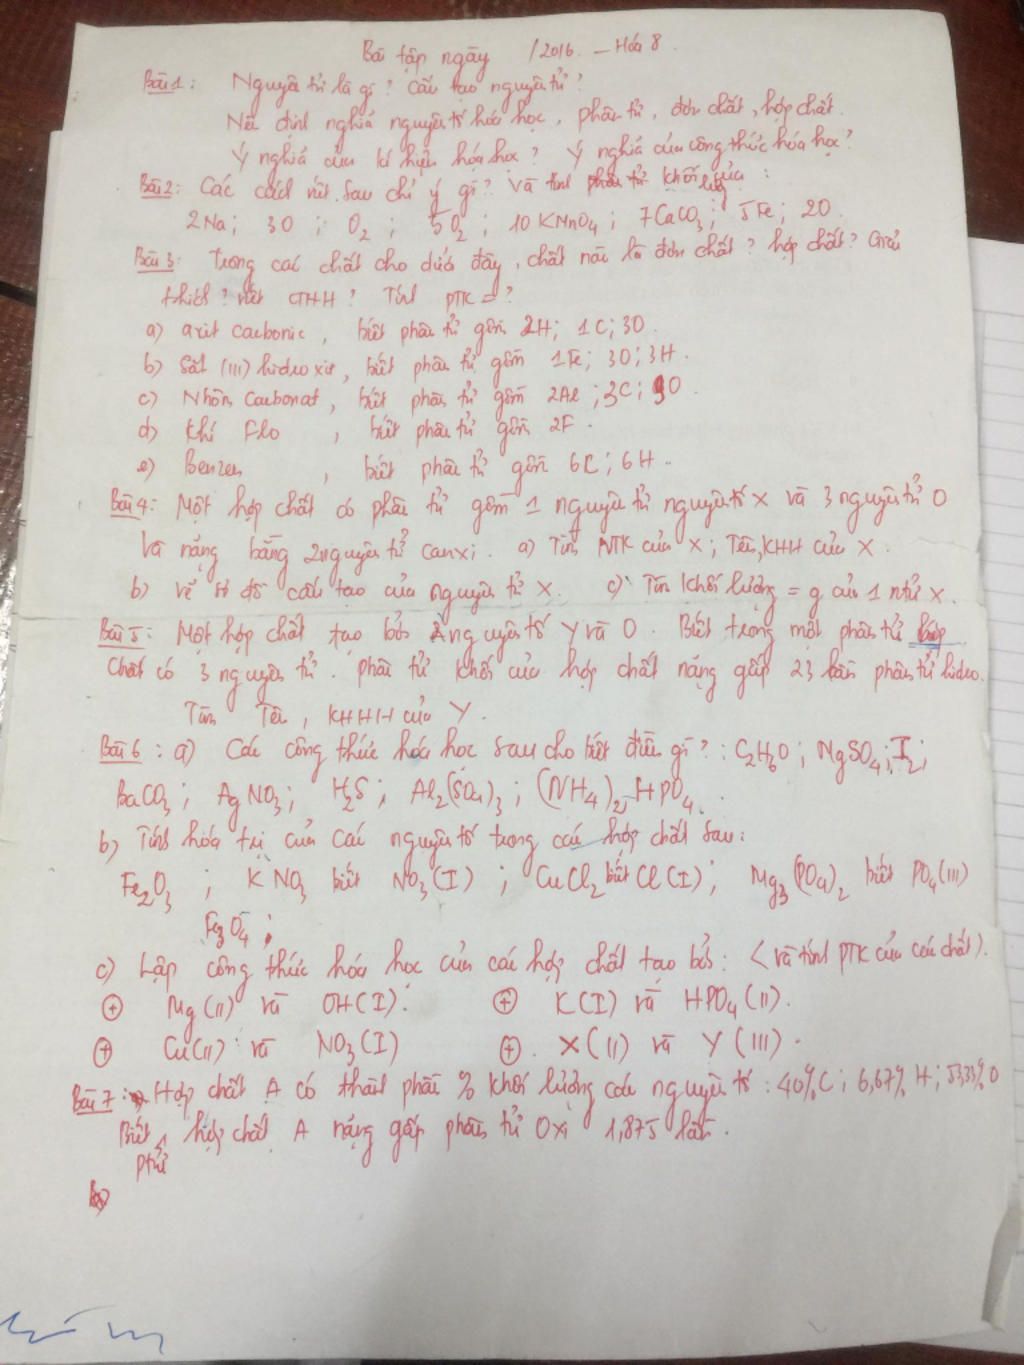 Bài tập ngày /2016. - Hóa 8.
Bài 1: Nguyên tử là gì? Cấu tạo nguyên tử?
Nêu định nghĩa nguyên tố hóa học, phân tử, đơn chất, hợp chất.
Ý nghĩa của kí hiệu hóa học? Ý nghĩa của công thức hóa học?
Bài 2: Các cách viết sau chỉ ý gì? Và tính khối lg của:
2Na; 3O; O2; 5O2; 10KMnO4; 7CaCO3; 5Fe; 2O.
Bài 3: Trong các chất cho dưới đây, chất nào là đơn chất? hợp chất? Giải
thích? viết CTHH? Tính PTK=?
a) axit cacbonic, biết phân tử gồm 2H; 1C; 3O.
b) Sắt (III) hidroxit, biết phân tử gồm 1Fe; 3O; 3H.
c) Nhôm Cacbonat, biết phân tử gồm 2Al; 3C; 9O.
d) Khí Flo, biết phân tử gồm 2F.
e) Benzen, biết phân tử gồm 6C; 6H.
Bài 4: Một hợp chất có phân tử gồm 1 nguyên tử nguyên tố X và 3 nguyên tử O
và nặng bằng 2 nguyên tử canxi. a) Tính NTK của X; Tên, KHHH của X.
b) vẽ sơ đồ cấu tạo của nguyên tử X. c) Tính khối lượng = g của 1 ntử X.
Bài 5: Một hợp chất tạo bởi nguyên tố Y và O. Biết trong một phân tử hợp
chất có 3 nguyên tử. phân tử khối của hợp chất nặng gấp 23 lần phân tử hidro.
Tìm Tên, KHHH của Y.
Bài 6: a) Các công thức hóa học sau cho biết điều gì?: C2H6O; MgSO4; I2;
BaCO3; AgNO3; H2S; Al2(SO4)3; (NH4)2HPO4.
b) Tính hóa trị của các nguyên tố trong các hợp chất sau:
Fe2O3; KNO3 biết NO3(I); CuCl2 biết Cl(I); Mg3(PO4)2 biết PO4(III)
Fe3O4;
c) Lập công thức hóa học của các hợp chất tạo bởi: (và tính PTK của các chất).
+ Mg(II) và OH(I). + K(I) và HPO4(II).
+ Cu(II) và NO3(I) + X(II) và Y(III).
Bài 7: Hợp chất A có thành phần % khối lượng các nguyên tố: 40%C; 6,67%H; 53,33%O
Biết ptử hợp chất A nặng gấp phân tử Oxi 1,875 lần.